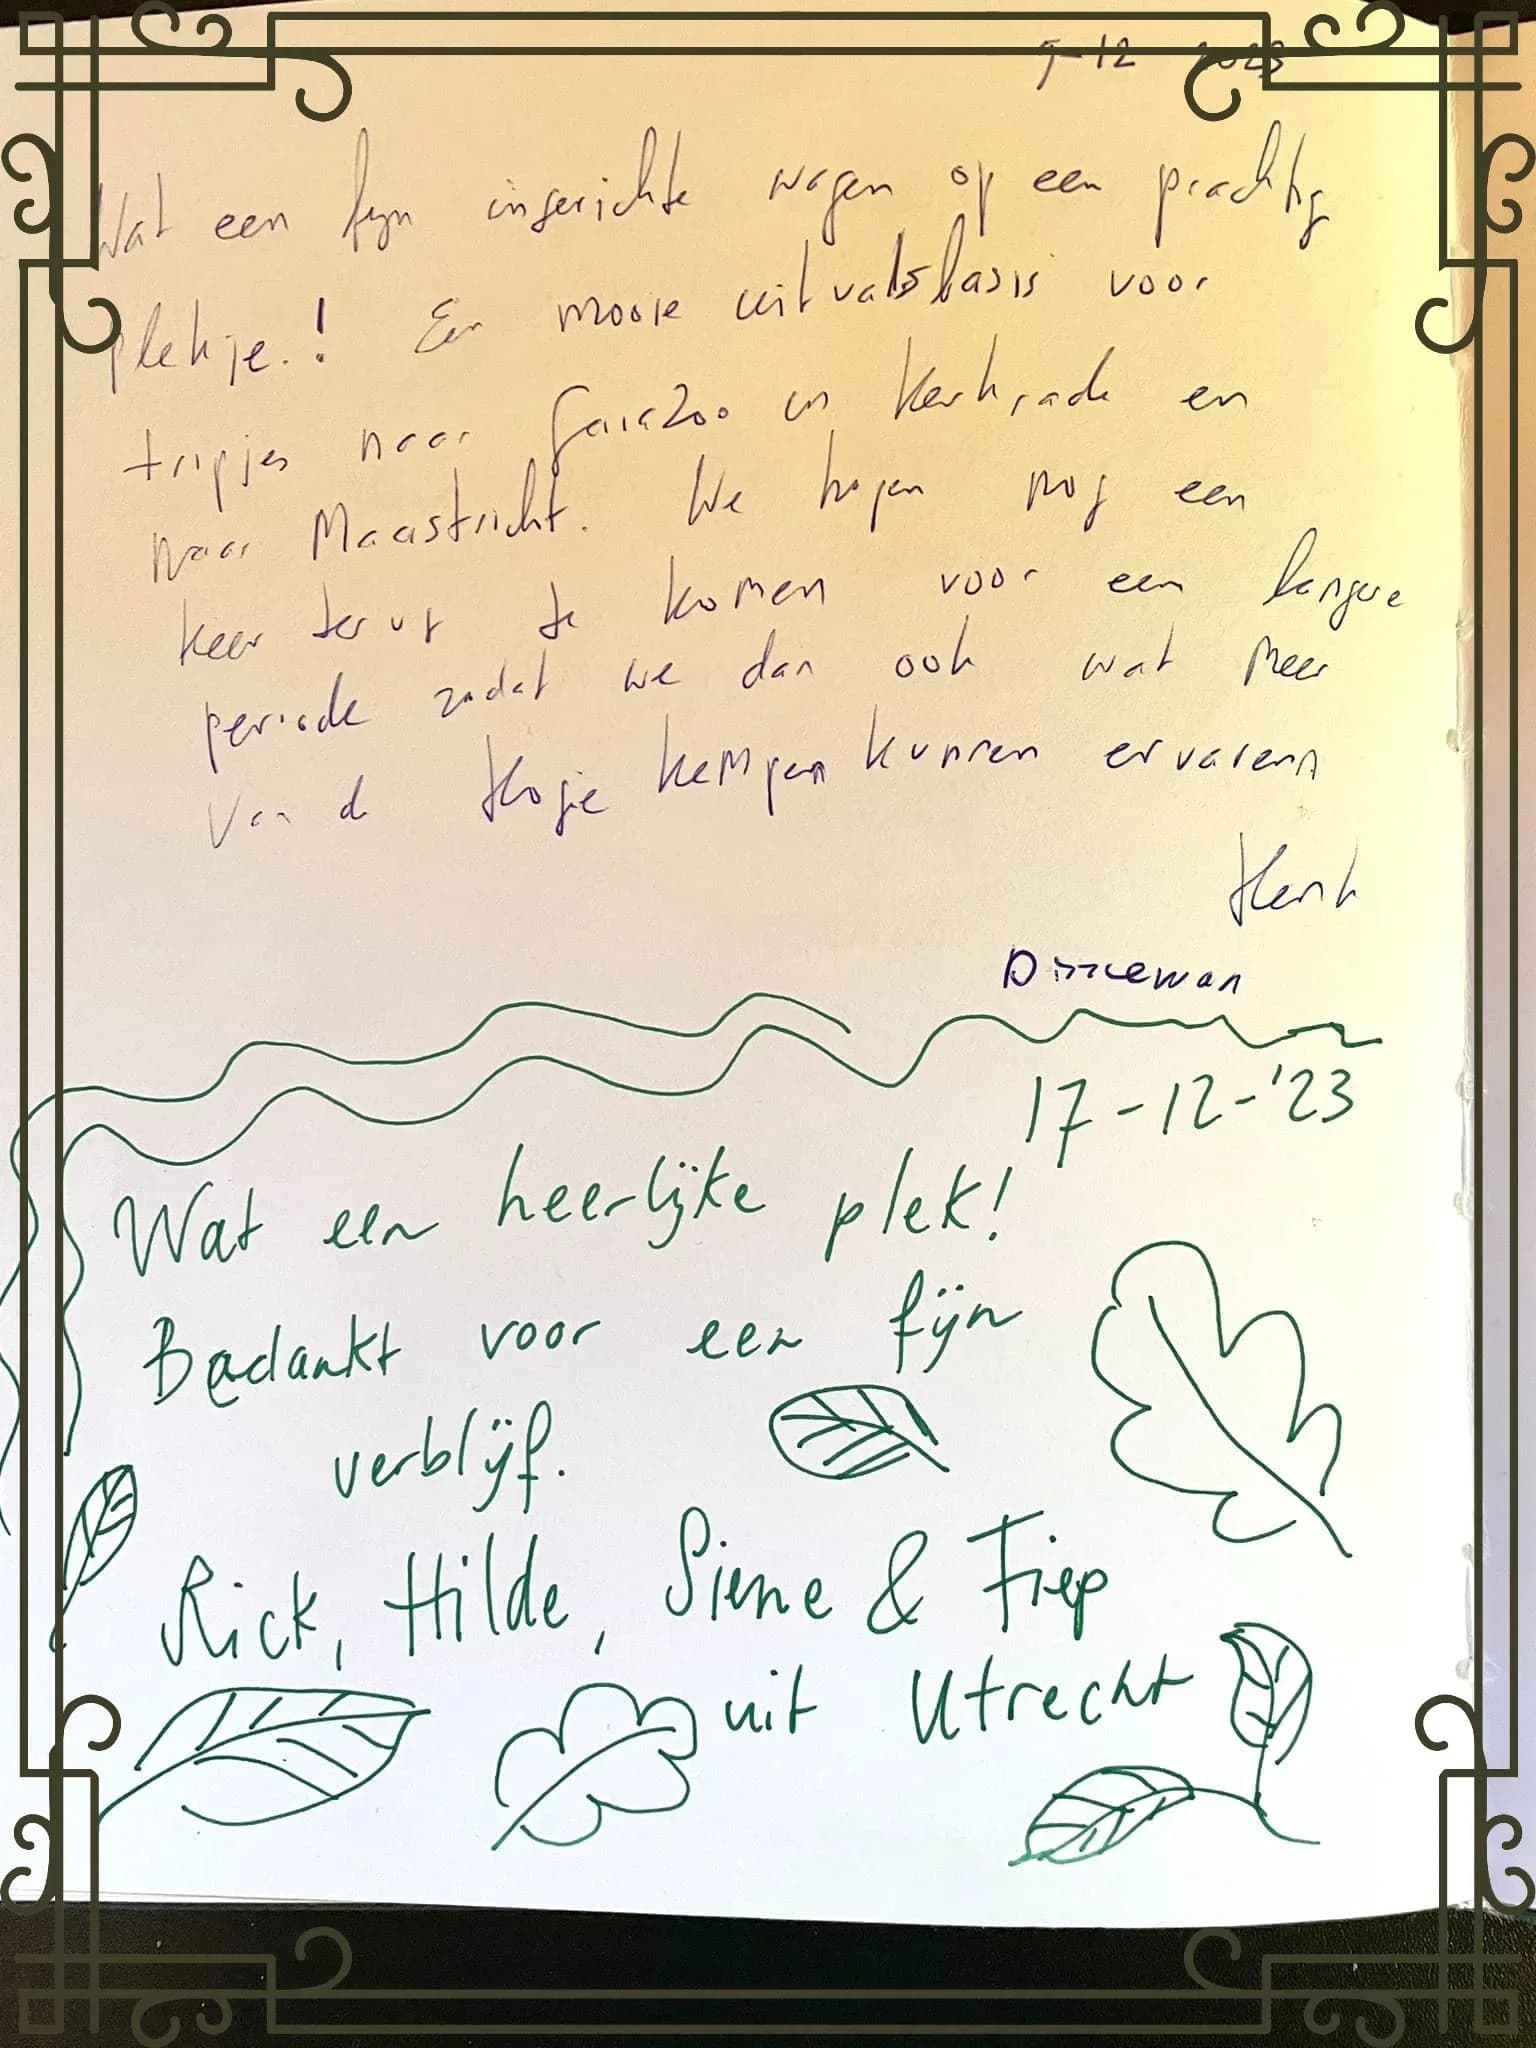 9-12 2023
Wat een fijn ingerichte wagen op een prachtig
plekje.! Een mooie uitvalsbasis voor
tripjes naar GaiaZoo in Kerkrade en
naar Maastricht. We hopen nog een
keer terug te komen voor een langere
periode zodat we dan ook wat meer
van de Hoge Kempen kunnen ervaren
Henk
17-12-'23
Wat een heerlijke plek!
Bedankt voor een fijn
verblijf.
Rick, Hilde, Siene & Fiep
uit Utrecht